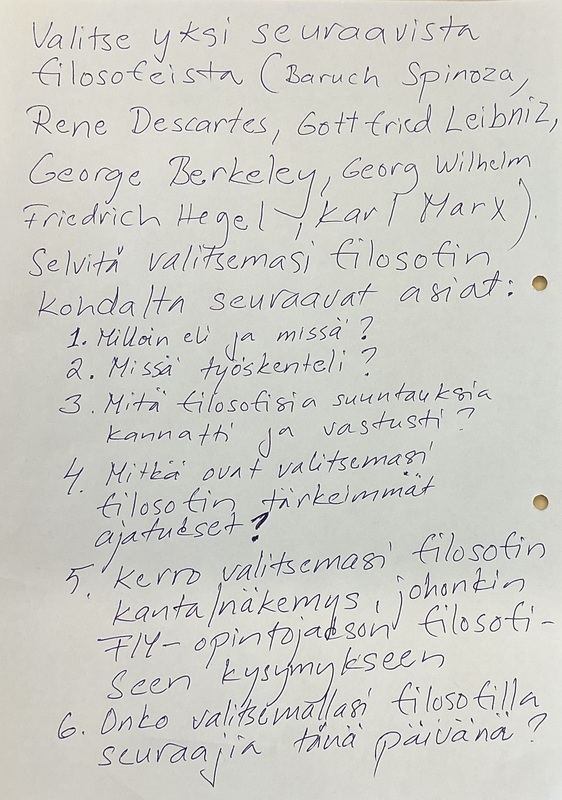 Valitse yksi seuraavista
filosofeista (Baruch Spinoza,
Rene Descartes, Gottfried Leibniz,
George Berkeley, Georg Wilhelm
Friedrich Hegel, Karl Marx).
Selvitä valitsemasi filosofin
kohdalta seuraavat asiat:
1. Milloin eli ja missä?
2. Missä työskenteli?
3. Mitä filosofisia suuntauksia
kannatti ja vastusti?
4. Mitkä ovat valitsemasi
filosofin tärkeimmät
ajatukset?
5. Kerro valitsemasi filosofin
kanta/näkemys, johonkin
FI1-opintojakson filosofi-
seen kysymykseen
6. Onko valitsemallasi filosofilla
seuraajia tänä päivänä?